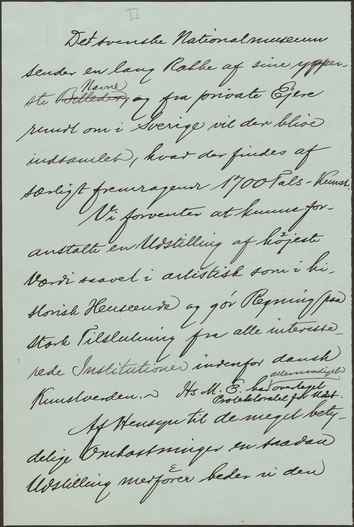 II
Det svenske Nationalmuseum
sender en lang Række af sine yper-
ste Billeder, Navne og fra private Ejere
rundt om i Sverige vil der blive
indsamlet, hvad der findes af
særligt fremragende 1700 Tals-Kunst.
Vi forventer at kunne for-
anstalte en Udstilling af højeste
Værdi saavel i artistisk som i hi-
storisk Henseende og gør Regning paa
stærk Tilslutning fra alle interesse-
rede Institutioner indenfor dansk
Kunstverden. ~ Hs. M. K. har allernaadigst overtaget
Protektoratet for Udst.
Af Hensyn til de meget bety-
delige Omkostninger en saadan
Udstilling medfører beder vi den